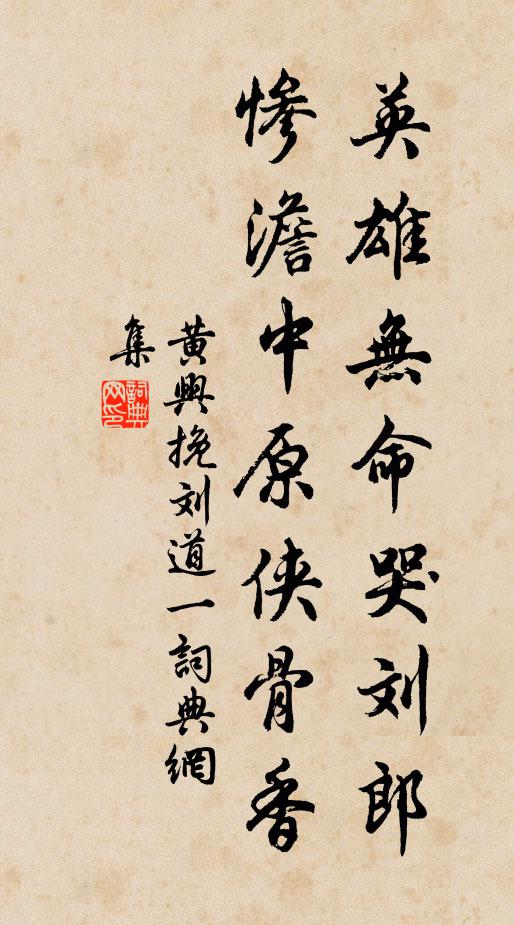 英雄無命哭刘郎
惨澹中原俠骨香
黄興挽刘道一詞典網
集
詞典
网印